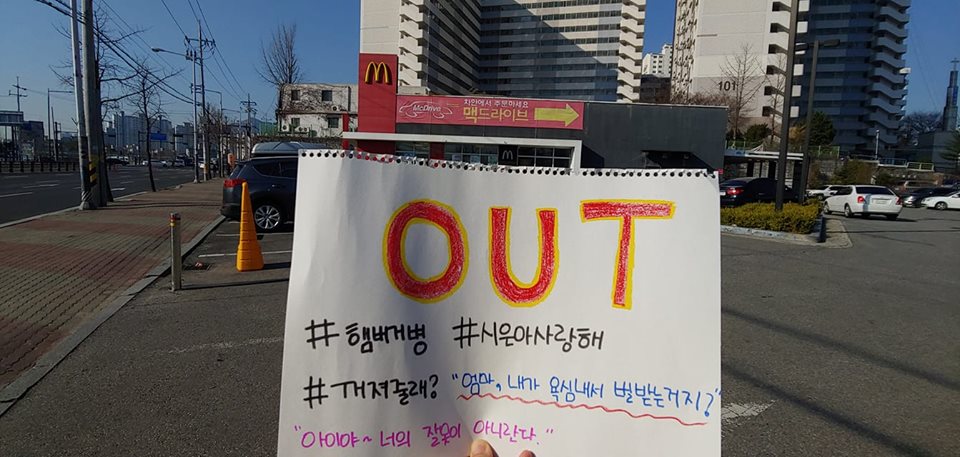 차안에서 주문하세요
McDrive 맥드라이브
101
OUT
#햄버거병 #시은아사랑해
#꺼져줄래? "엄마, 내가 욕심내서 벌받는거지?"
"아이야~ 너의 잘못이 아니란다."